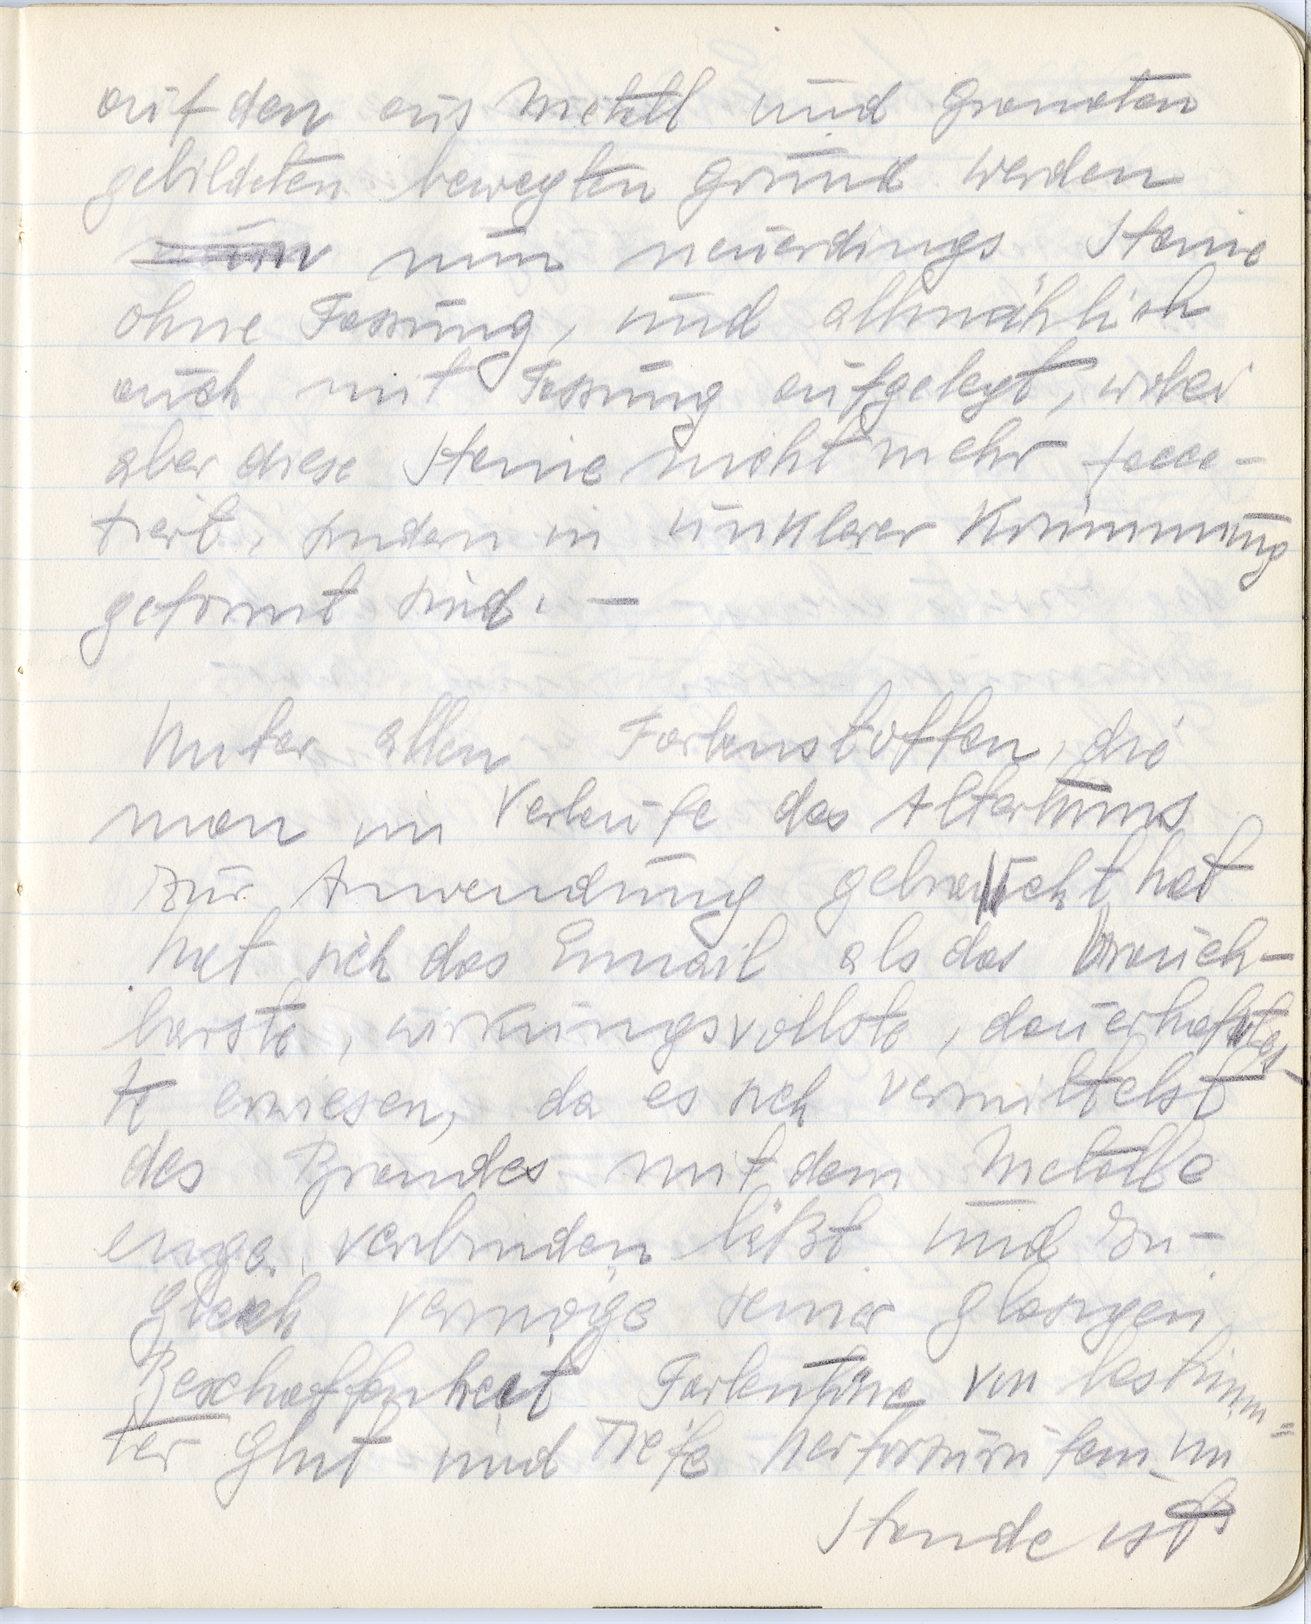 auf den aus Metall und Granaten
gebildeten bewegten Grund werden
nun neuerdings Steine
ohne Fassung, und allmählich
auch mit Fassung aufgelegt, wobei
aber diese Steine nicht mehr facce-
tiert, sondern in unklarer Krümmung
geformt sind. —
Unter allen Farbenstoffen, die
man im Verlaufe des Altertums
zur Anwendung gebracht hat
hat sich das Email als das brauch-
barste, wirkungsvollste, dauerhaftes-
te erwiesen, da es sich vermittelst
des Brandes mit dem Metalle
enge verbinden läßt und zu-
gleich vermöge seiner glasigen
Beschaffenheit Farbentöne von bestimm=
ter Glut und Tiefe herforzurufen im
Stande ist